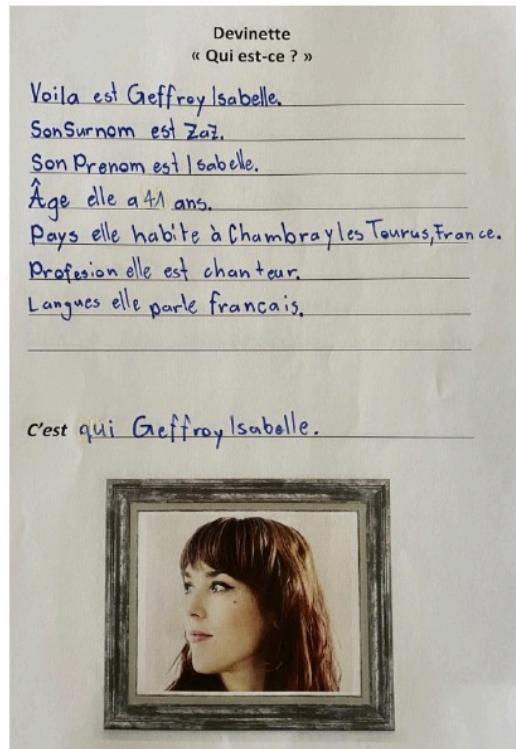 Devinette
« Qui est-ce ? »
Voila est Geffroy Isabelle.
Son Surnom est Zaz.
Son Prenom est Isabelle.
Âge elle a 41 ans.
Pays elle habite à Chambray les Tourus, France.
Profesion elle est chanteur.
Langues elle parle francais.
C'est qui Geffroy Isabelle.